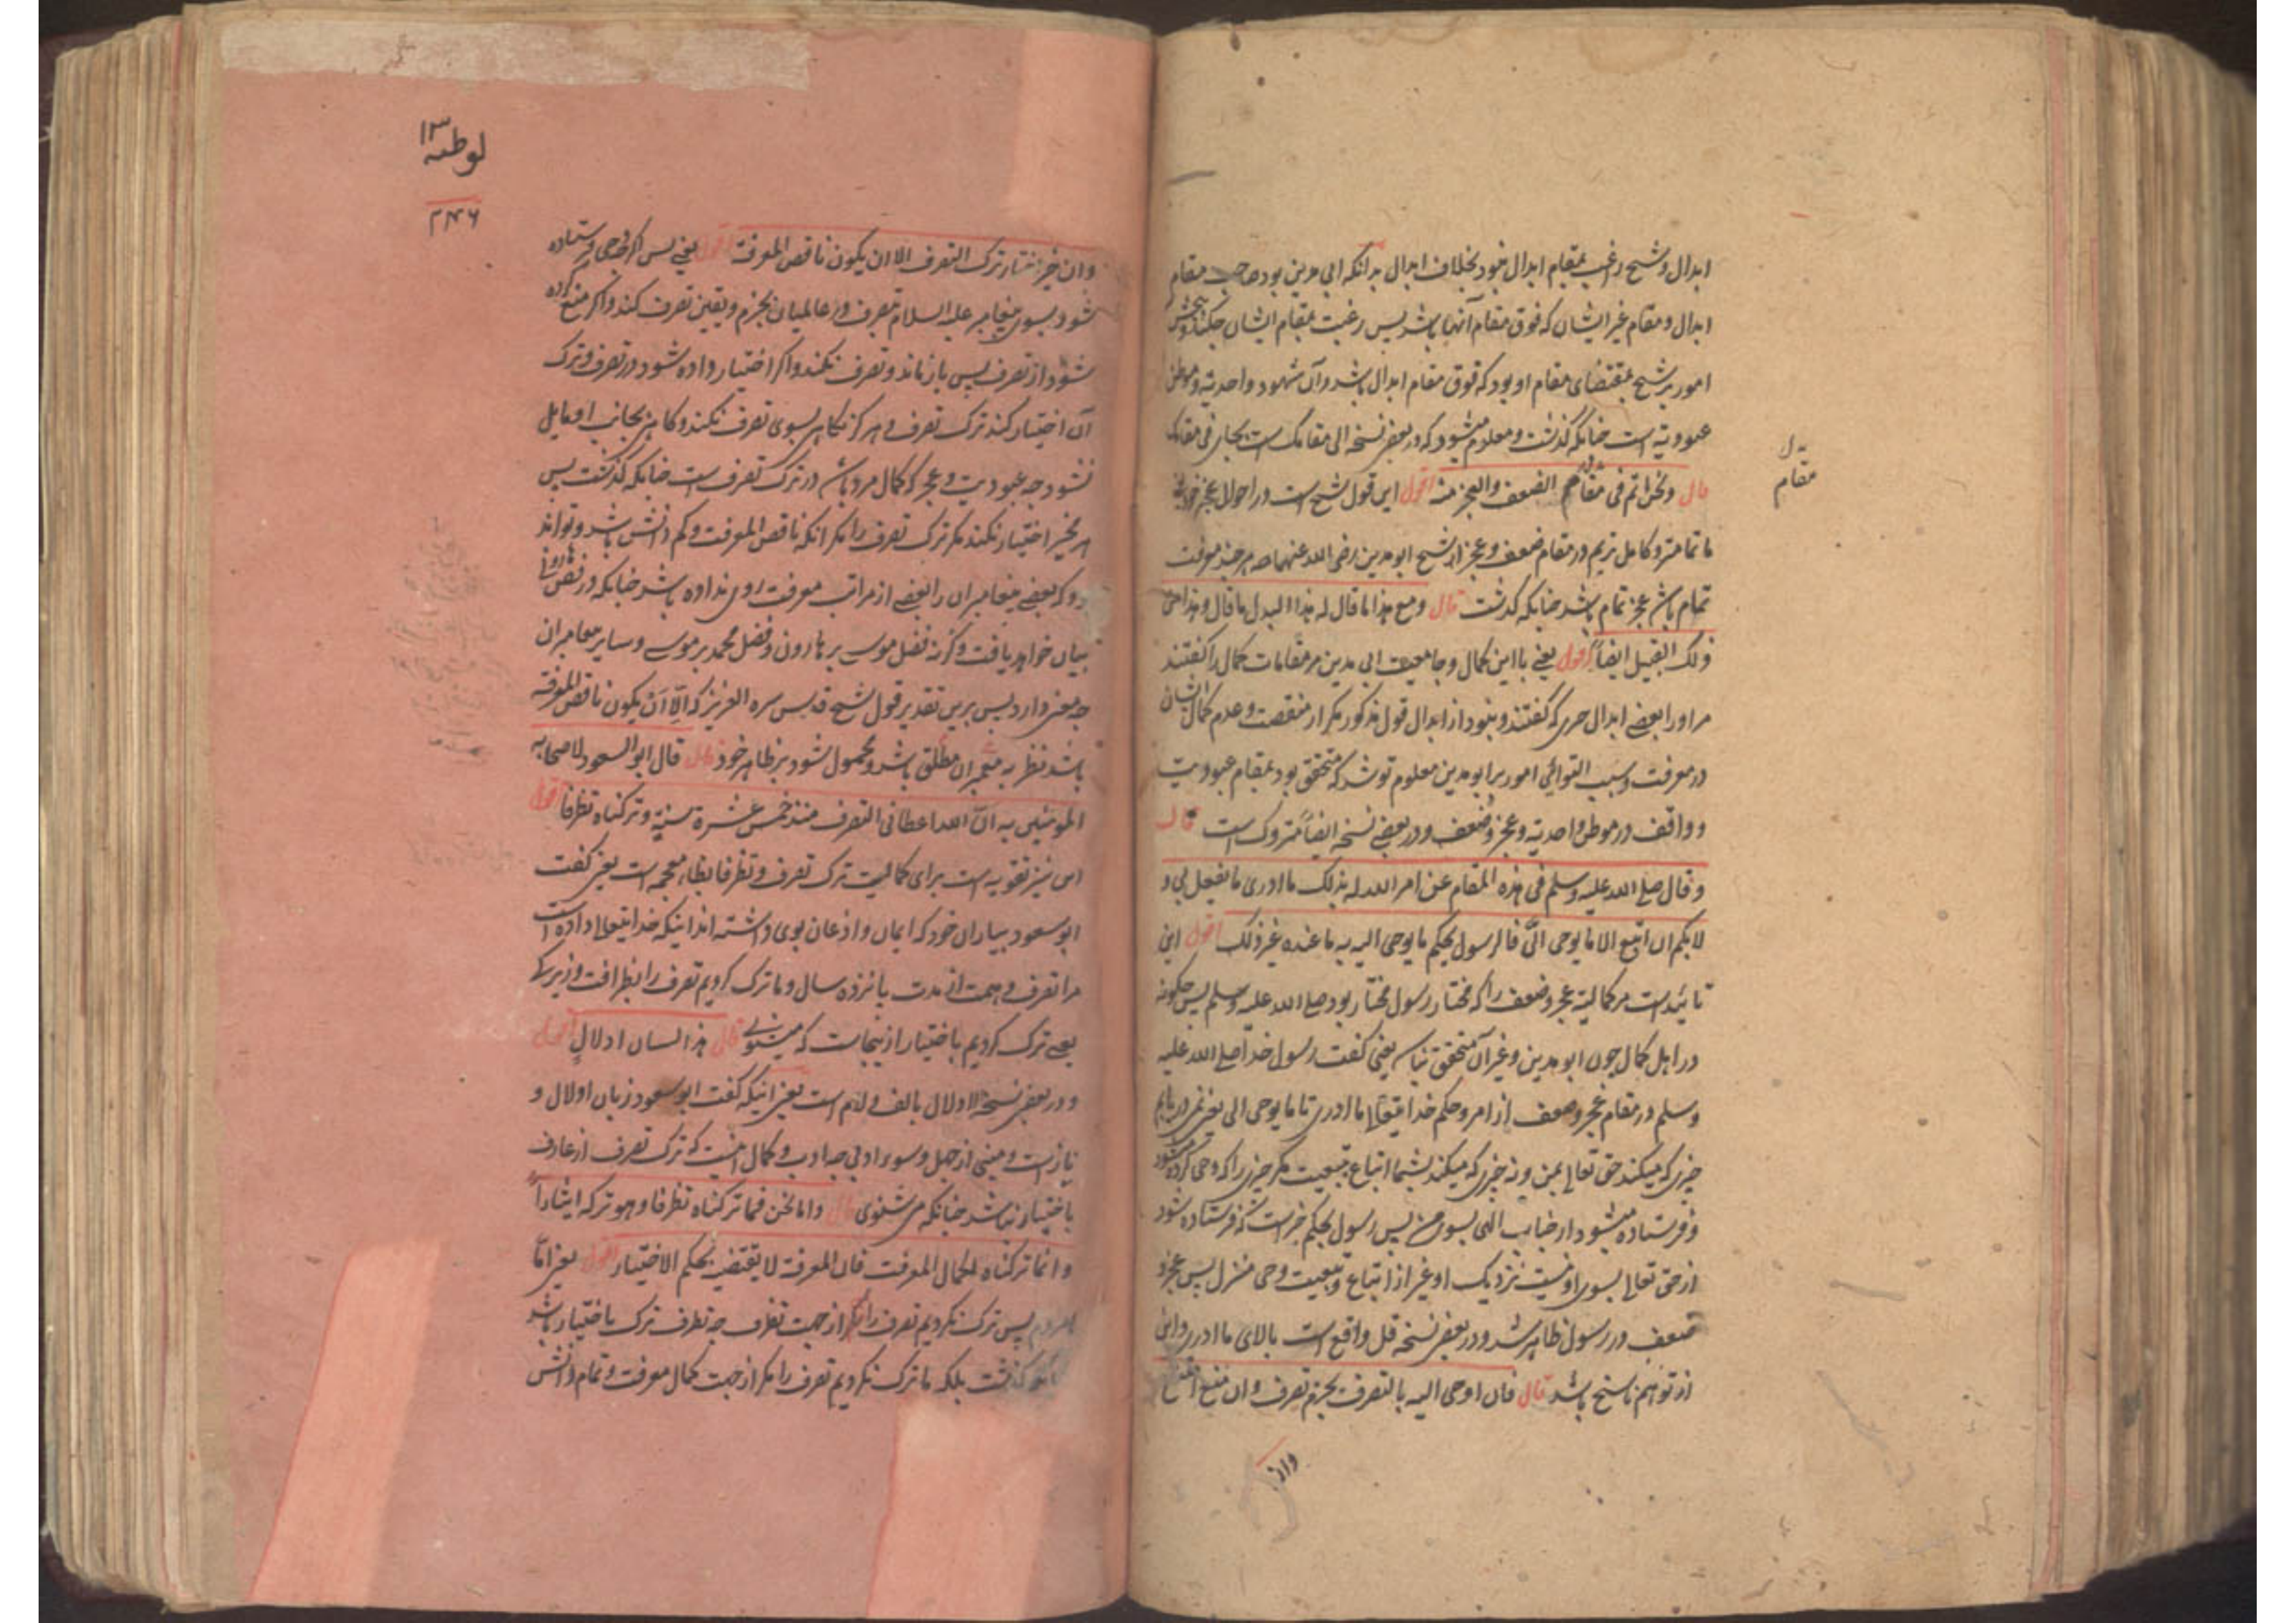 ابدال و شیخ راغب بمقام ابدال نبود بخلاف ابدال بدانکه ابی مدین بود صاحب مقام
ابدال و مقام غیر ایشان که فوق مقام آنها باشد پس رغبت بمقام ایشان چکند
امور بر شیخ بمقتضای مقام او بود که فوق مقام ابدال باشد و آن شهود واحدیة و موطن
عبودیة است چنانکه گذشت و معلوم میشود که در بعضی نسخه الی مقامک است بجای فی مقامک
قال ونحن اتم فی مقام الضعف والعجز منه اقول این قول شیخ است در احوال عجز خود یعنی
ما تمامتر و کامل تریم در مقام ضعف و عجز از شیخ ابو مدین رضی الله عنهما چه هر چند معرفت
تمام باشد عجز تمام باشد چنانکه گذشت قال ومع هذا ما قال له هذا البدل ما قال وهذا من
ذلک القبیل ایضاً اقول یعنی با این کمال و جامعیت ابی مدین مر مقامات کمال را گفتند
مر او را بعضی ابدال چیزی که گفتند و نبود از ابدال قول مذکور مگر از منقصت و عدم کمال ایشان
در معرفت و سبب التوائی امور بر ابو مدین معلوم تو شد که متحقق بود بمقام عبودیت
و واقف در موطن واحدیة و عجز و ضعف و در بعضی نسخه ایضاً متروک است قال
وقال صلی الله علیه وسلم فی هذه المقام عن امر الله له بذلک ما ادری ما یفعل بی و
لا بکم ان اتبع الا ما یوحی الیّ فالرسول بحکم ما یوحی الیه به ما عنده غیر ذلک اقول این
تائیدست مر کمالیة عجز و ضعف را که مختار رسول مختار بود صلی الله علیه وسلم پس چگونه
در اهل کمال چون ابو مدین و غیر آن متحقق نباشد یعنی گفت رسول خدا صلی الله علیه
وسلم در مقام عجز و ضعف از امر و حکم خدایتعالی ما ادری تا ما یوحی الی یعنی نمی دریابم
چیزی که میکند حق تعالی بمن و نه چیزی که میکند بشما اتباع و تبعیت مگر چیزی را که وحی کرده میشود
و فرستاده میشود از جناب الهی بسوی من پس رسول بحکم چیزیست که فرستاده شود
از حق تعالی بسوی او نیست نزدیک او غیر از اتباع و تبعیت وحی منزل پس عجز و
ضعف در رسول ظاهر شد و در بعضی نسخه قل واقع است بالای ما ادری و این
از توهم ناسخ باشد قال فان اوحی الیه بالتصرف بجزم تصرف وان منع امتنع
وان
مقام
لوطیه ۱۳
۲۴۶
وان خیر اختار ترک التصرف الا ان یکون ناقص المعرفة اقول یعنی پس اگر وحی فرستاده
شود بسوی پیغامبر علیه السلام بتصرف در عالمیان بجزم و یقین تصرف کند و اگر منع کرده
شود از تصرف پس باز ماند و تصرف نکند و اگر اختیار داده شود در تصرف و ترک
آن اختیار کند ترک تصرف و هرگز نگاهی بسوی تصرف نکند و گاهی بجانب او مایل
نشود چه عبودیت و عجز که کمال مرد باشد در ترک تصرف است چنانکه گذشت پس
هر مخیر اختیار نکند مگر ترک تصرف را مگر آنکه ناقص المعرفت و کم دانش باشد و تواند
بود که بعضی پیغامبران را بعضی از مراتب معرفت اوی نداده باشد چنانکه در فص
بیان خواهد یافت وگرنه فضل موسی بر هارون و فضل محمد بر موسی و سایر پیغامبران
چه معنی دارد پس برین تقدیر قول شیخ قدس سره العزیز که الا ان یکون ناقص المعرفه
باشد نظر به پیغمبران مطلق باشد و محمول شود بر ظاهر خود قال قال ابو السعود لاصحابه
المومنین به انّ الله اعطانی التصرف منذ خمس عشرة سنیة وترکناه تظرفا اقول
این نیز تقویه است برای کمالیت ترک تصرف و تظرفا بظاء معجمه است یعنی گفت
ابو سعود بیاران خود که ایمان و اذعان بوی داشته اند اینکه خدایتعالی داده است
مرا تصرف و همت از مدت پانزده سال و ما ترک کردیم تصرف را بظرافت و زیرکی
یعنی ترک کردیم باختیار ازینجاست که میشنوی قال هذا لسان ادلال اقول
و در بعضی نسخه الادلال بالف و لام است یعنی اینکه گفت ابو سعود زبان ادلال و
نازست و مبنی از جهل و سوء ادبی چه ادب و کمال آنست که ترک تصرف از عارف
باختیار نباشد چنانکه می شنوی قال واما نحن فما ترکناه تظرفا وهو ترکه ایثاراً
وانما ترکناه لکمال المعرفت فان المعرفة لا یقتضیه بحکم الاختیار اقول یعنی امّا
پس ترک نکردیم تصرف را مگر از جهت تظرف چه تظرف ترک باختیار باشد
گذشت بلکه ما ترک نکردیم تصرف را مگر از جهت کمال معرفت و تمام دانش